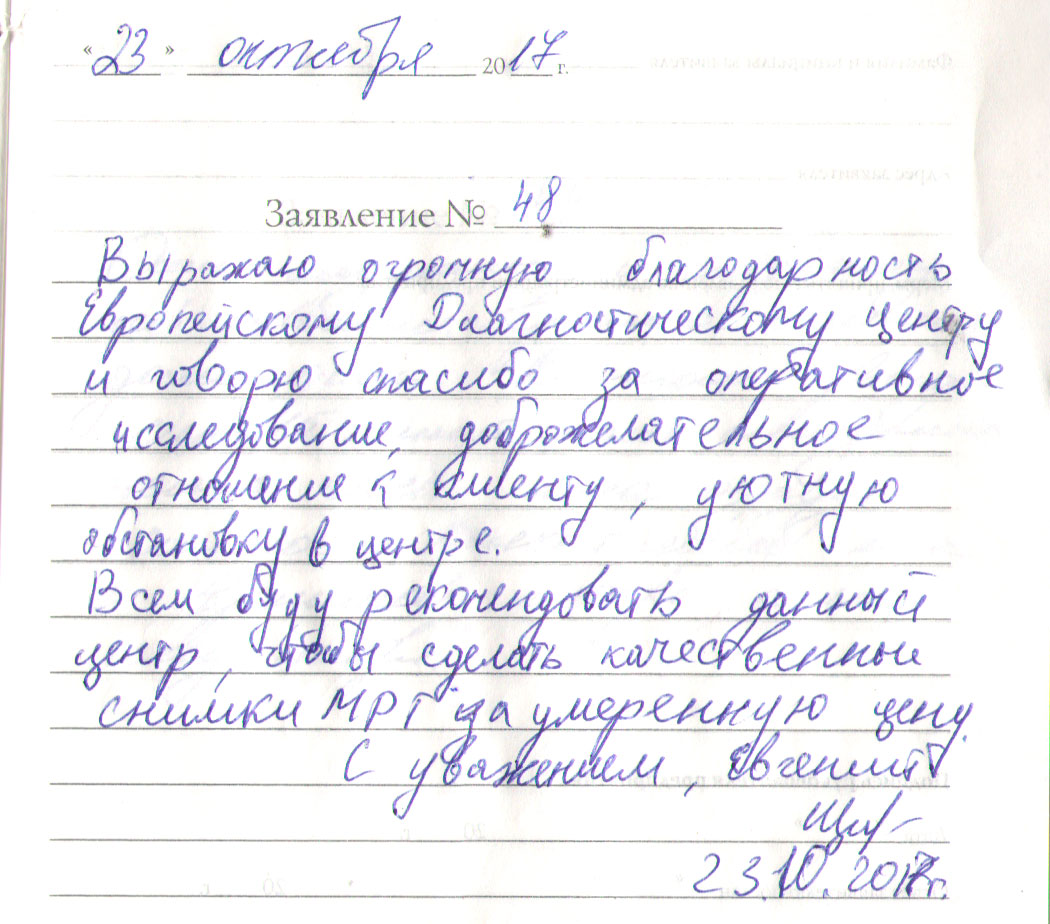 « 23 » октября 2017 г.
Заявление № 48
Выражаю огромную благодарность
Европейскому Диагностическому центру
и говорю спасибо за оперативное
исследование, доброжелательное
отношение к клиенту, уютную
обстановку в центре.
Всем буду рекомендовать данный
центр, чтобы сделать качественные
снимки МРТ за умеренную цену.
С уважением, Евгений
23.10.2017г.